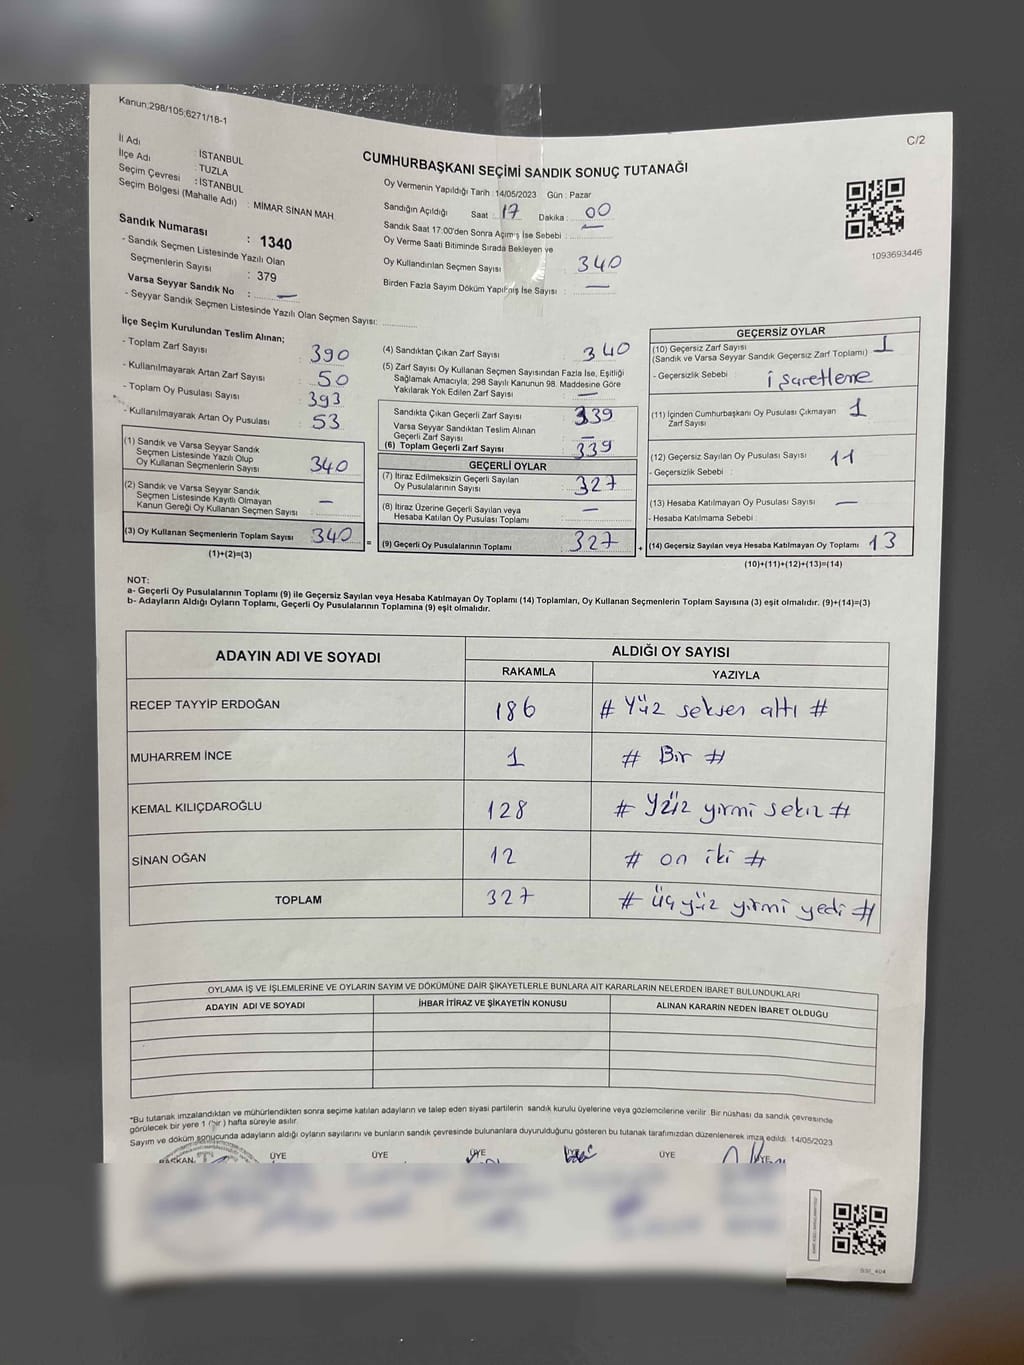 Kanun;298/105;6271/18-1
C/2
İl Adı : İSTANBUL
İlçe Adı : TUZLA
Seçim Çevresi : İSTANBUL
Seçim Bölgesi (Mahalle Adı) : MİMAR SİNAN MAH.
Sandık Numarası : 1340
- Sandık Seçmen Listesinde Yazılı Olan
Seçmenlerin Sayısı : 379
Varsa Seyyar Sandık No : —
- Seyyar Sandık Seçmen Listesinde Yazılı Olan Seçmen Sayısı:
CUMHURBAŞKANI SEÇİMİ SANDIK SONUÇ TUTANAĞI
Oy Vermenin Yapıldığı Tarih : 14/05/2023 Gün : Pazar
Sandığın Açıldığı Saat : 17 Dakika : 00
Sandık Saat 17:00'den Sonra Açılmış İse Sebebi : —
Oy Verme Saati Bitiminde Sırada Bekleyen ve
Oy Kullandırılan Seçmen Sayısı : 340
Birden Fazla Sayım Döküm Yapılmış İse Sayısı : —
1093693446
İlçe Seçim Kurulundan Teslim Alınan;
- Toplam Zarf Sayısı 390
- Kullanılmayarak Artan Zarf Sayısı 50
- Toplam Oy Pusulası Sayısı 393
- Kullanılmayarak Artan Oy Pusulası 53
(1) Sandık ve Varsa Seyyar Sandık
Seçmen Listesinde Yazılı Olup
Oy Kullanan Seçmenlerin Sayısı 340
(2) Sandık ve Varsa Seyyar Sandık
Seçmen Listesinde Kayıtlı Olmayan
Kanun Gereği Oy Kullanan Seçmen Sayısı —
(3) Oy Kullanan Seçmenlerin Toplam Sayısı 340
(1)+(2)=(3)
=
(4) Sandıktan Çıkan Zarf Sayısı : 340
(5) Zarf Sayısı Oy Kullanan Seçmen Sayısından Fazla İse, Eşitliği
Sağlamak Amacıyla; 298 Sayılı Kanunun 98. Maddesine Göre
Yakılarak Yok Edilen Zarf Sayısı : —
Sandıkta Çıkan Geçerli Zarf Sayısı 339
Varsa Seyyar Sandıktan Teslim Alınan
Geçerli Zarf Sayısı —
(6) Toplam Geçerli Zarf Sayısı 339
GEÇERLİ OYLAR
(7) İtiraz Edilmeksizin Geçerli Sayılan
Oy Pusulalarının Sayısı 327
(8) İtiraz Üzerine Geçerli Sayılan veya
Hesaba Katılan Oy Pusulası Toplamı —
(9) Geçerli Oy Pusulalarının Toplamı 327
+
GEÇERSİZ OYLAR
(10) Geçersiz Zarf Sayısı 1
(Sandık ve Varsa Seyyar Sandık Geçersiz Zarf Toplamı)
- Geçersizlik Sebebi : işaretleme
(11) İçinden Cumhurbaşkanı Oy Pusulası Çıkmayan 1
Zarf Sayısı
(12) Geçersiz Sayılan Oy Pusulası Sayısı 11
- Geçersizlik Sebebi :
(13) Hesaba Katılmayan Oy Pusulası Sayısı —
- Hesaba Katılmama Sebebi :
(14) Geçersiz Sayılan veya Hesaba Katılmayan Oy Toplamı 13
(10)+(11)+(12)+(13)=(14)
NOT:
a- Geçerli Oy Pusulalarının Toplamı (9) ile Geçersiz Sayılan veya Hesaba Katılmayan Oy Toplamı (14) Toplamları, Oy Kullanan Seçmenlerin Toplam Sayısına (3) eşit olmalıdır. (9)+(14)=(3)
b- Adayların Aldığı Oyların Toplamı, Geçerli Oy Pusulalarının Toplamına (9) eşit olmalıdır.
ADAYIN ADI VE SOYADI ALDIĞI OY SAYISI
RAKAMLA YAZIYLA
RECEP TAYYİP ERDOĞAN 186 # Yüz seksen altı #
MUHARREM İNCE 1 # Bir #
KEMAL KILIÇDAROĞLU 128 # Yüz yirmi sekiz #
SİNAN OĞAN 12 # on iki #
TOPLAM 327 # üç yüz yirmi yedi #
OYLAMA İŞ VE İŞLEMLERİNE VE OYLARIN SAYIM VE DÖKÜMÜNE DAİR ŞİKAYETLERLE BUNLARA AİT KARARLARIN NELERDEN İBARET BULUNDUKLARI
ADAYIN ADI VE SOYADI İHBAR İTİRAZ VE ŞİKAYETİN KONUSU ALINAN KARARIN NEDEN İBARET OLDUĞU
*Bu tutanak imzalandıktan ve mühürlendikten sonra seçime katılan adayların ve talep eden siyasi partilerin sandık kurulu üyelerine veya gözlemcilerine verilir. Bir nüshası da sandık çevresinde
görülecek bir yere 1 (bir) hafta süreyle asılır.
Sayım ve döküm sonucunda adayların aldığı oyların sayılarını ve bunların sandık çevresinde bulunanlara duyurulduğunu gösteren bu tutanak tarafımızdan düzenlenerek imza edildi. 14/05/2023
BAŞKAN ÜYE ÜYE ÜYE ÜYE ÜYE